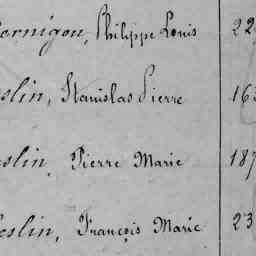 ornigou, Philippe Louis 22
slin, Stanislas Pierre 163
slin, Pierre Marie 187
eslin, François Marie 23